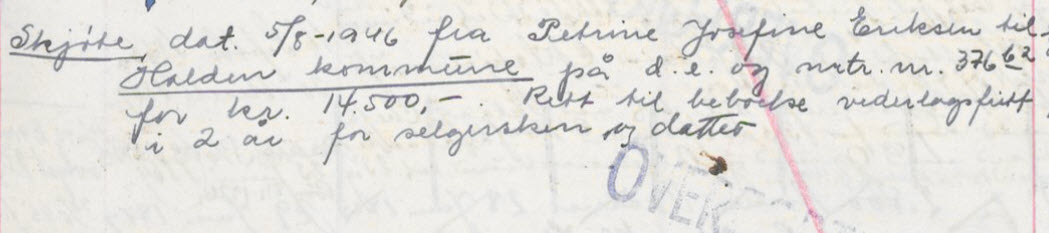 Skjøte, dat. 5/8-1946 fra Petrine Josefine Eriksen til
Halden kommune på d.e. og mtr. nr. 376 b2
for kr. 14.500,-. Rett til beboelse vederlagsfritt
i 2 år for selgersken og datter
OVER